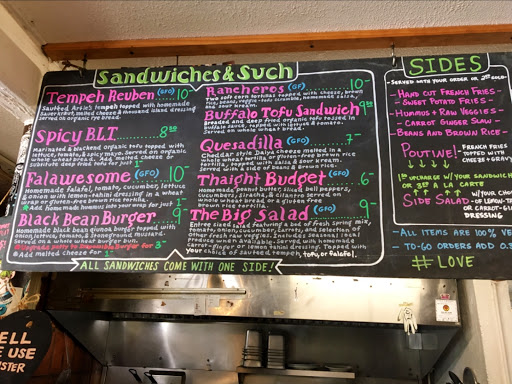 Sandwiches & Such
Tempeh Reuben (GFO) 10-
Sautéed Artie's tempeh topped with homemade
sauerkraut, melted cheese & thousand island dressing
served on organic rye bread.
Spicy BLT 8.50
Marinated & blackened organic tofu topped with
lettuce, tomato, & spicy mayo. Served on organic
whole wheat bread. Add melted cheese or
homemade pickles for just 1-
Falawesome (GFO) 10-
Homemade falafel, tomato, cucumber, lettuce
& onion with lemon-tahini dressing in a wheat
wrap or gluten-free brown rice tortilla.
Add house hummus into your wrap for just 1-
Black Bean Burger 9-
Homemade black bean quinoa burger topped with
onion, lettuce, tomato, & stoneground mustard.
Served on a whole wheat burger bun.
Add melted cheese for 1-
Rancheros (GF) 10-
Two soft corn tortillas topped with cheese, brown
rice, beans, veggie-tofu scramble, homemade salsa,
and sour kream.
Buffalo Tofu Sandwich 9.50
Breaded and deep fried organic tofu tossed in
buffalo sauce, topped with lettuce & tomato.
Served on whole wheat bread.
Quesadilla (GFO) 7-
Cheddar style Daiya cheese melted in a
whole wheat tortilla or gluten-free brown rice
tortilla, topped with salsa & sour kream.
Served with a side of beans & rice.
Thaight Budget (GFO) 6-
Homemade peanut butter, sliced bell peppers,
cucumbers, sriracha, & cilantro served on
whole wheat bread or a gluten free
brown rice tortilla.
The Big Salad (GFO) 9-
Entree sized salad featuring a bed of fresh spring mix,
tomato, onion, cucumber, carrots, and selection of
other fresh raw veggies. Includes seasonal local
produce when available. Served with homemade
carrot-ginger or lemon tahini dressing. Topped with
your choice of sautéed tempeh, tofu, or falafel.
ALL SANDWICHES COME WITH ONE SIDE!
SIDES
-SERVED WITH YOUR ORDER OR
- HAND CUT FRENCH FRIES -
- SWEET POTATO FRIES -
- HUMMUS + RAW VEGGIES
- CARROT GINGER SLAW -
- BEANS AND BROWN RICE -
POUTINE! - FRENCH FRIES
TOPPED WITH
CHEESE + GRAVY
1- UPCHARGE W/ SANDWICH
OR 3.50 A LA CARTE
SIDE SALAD W/ YOUR CHO
OF LEMON-TA
OR CARROT-GI
DRESSING
- ALL ITEMS ARE 100% VE
- TO-GO ORDERS ADD 0.
# LOVE
ELL
E USE
STER